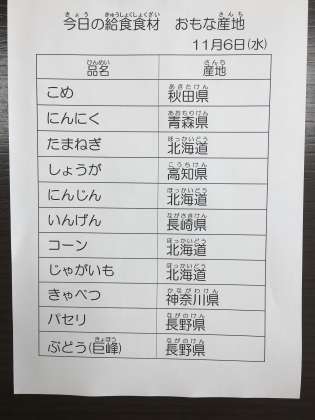 今日の給食食材 おもな産地
11月6日(水)
品名 産地
こめ 秋田県
にんにく 青森県
たまねぎ 北海道
しょうが 高知県
にんじん 北海道
いんげん 長崎県
コーン 北海道
じゃがいも 北海道
きゃべつ 神奈川県
パセリ 長野県
ぶどう(巨峰) 長野県